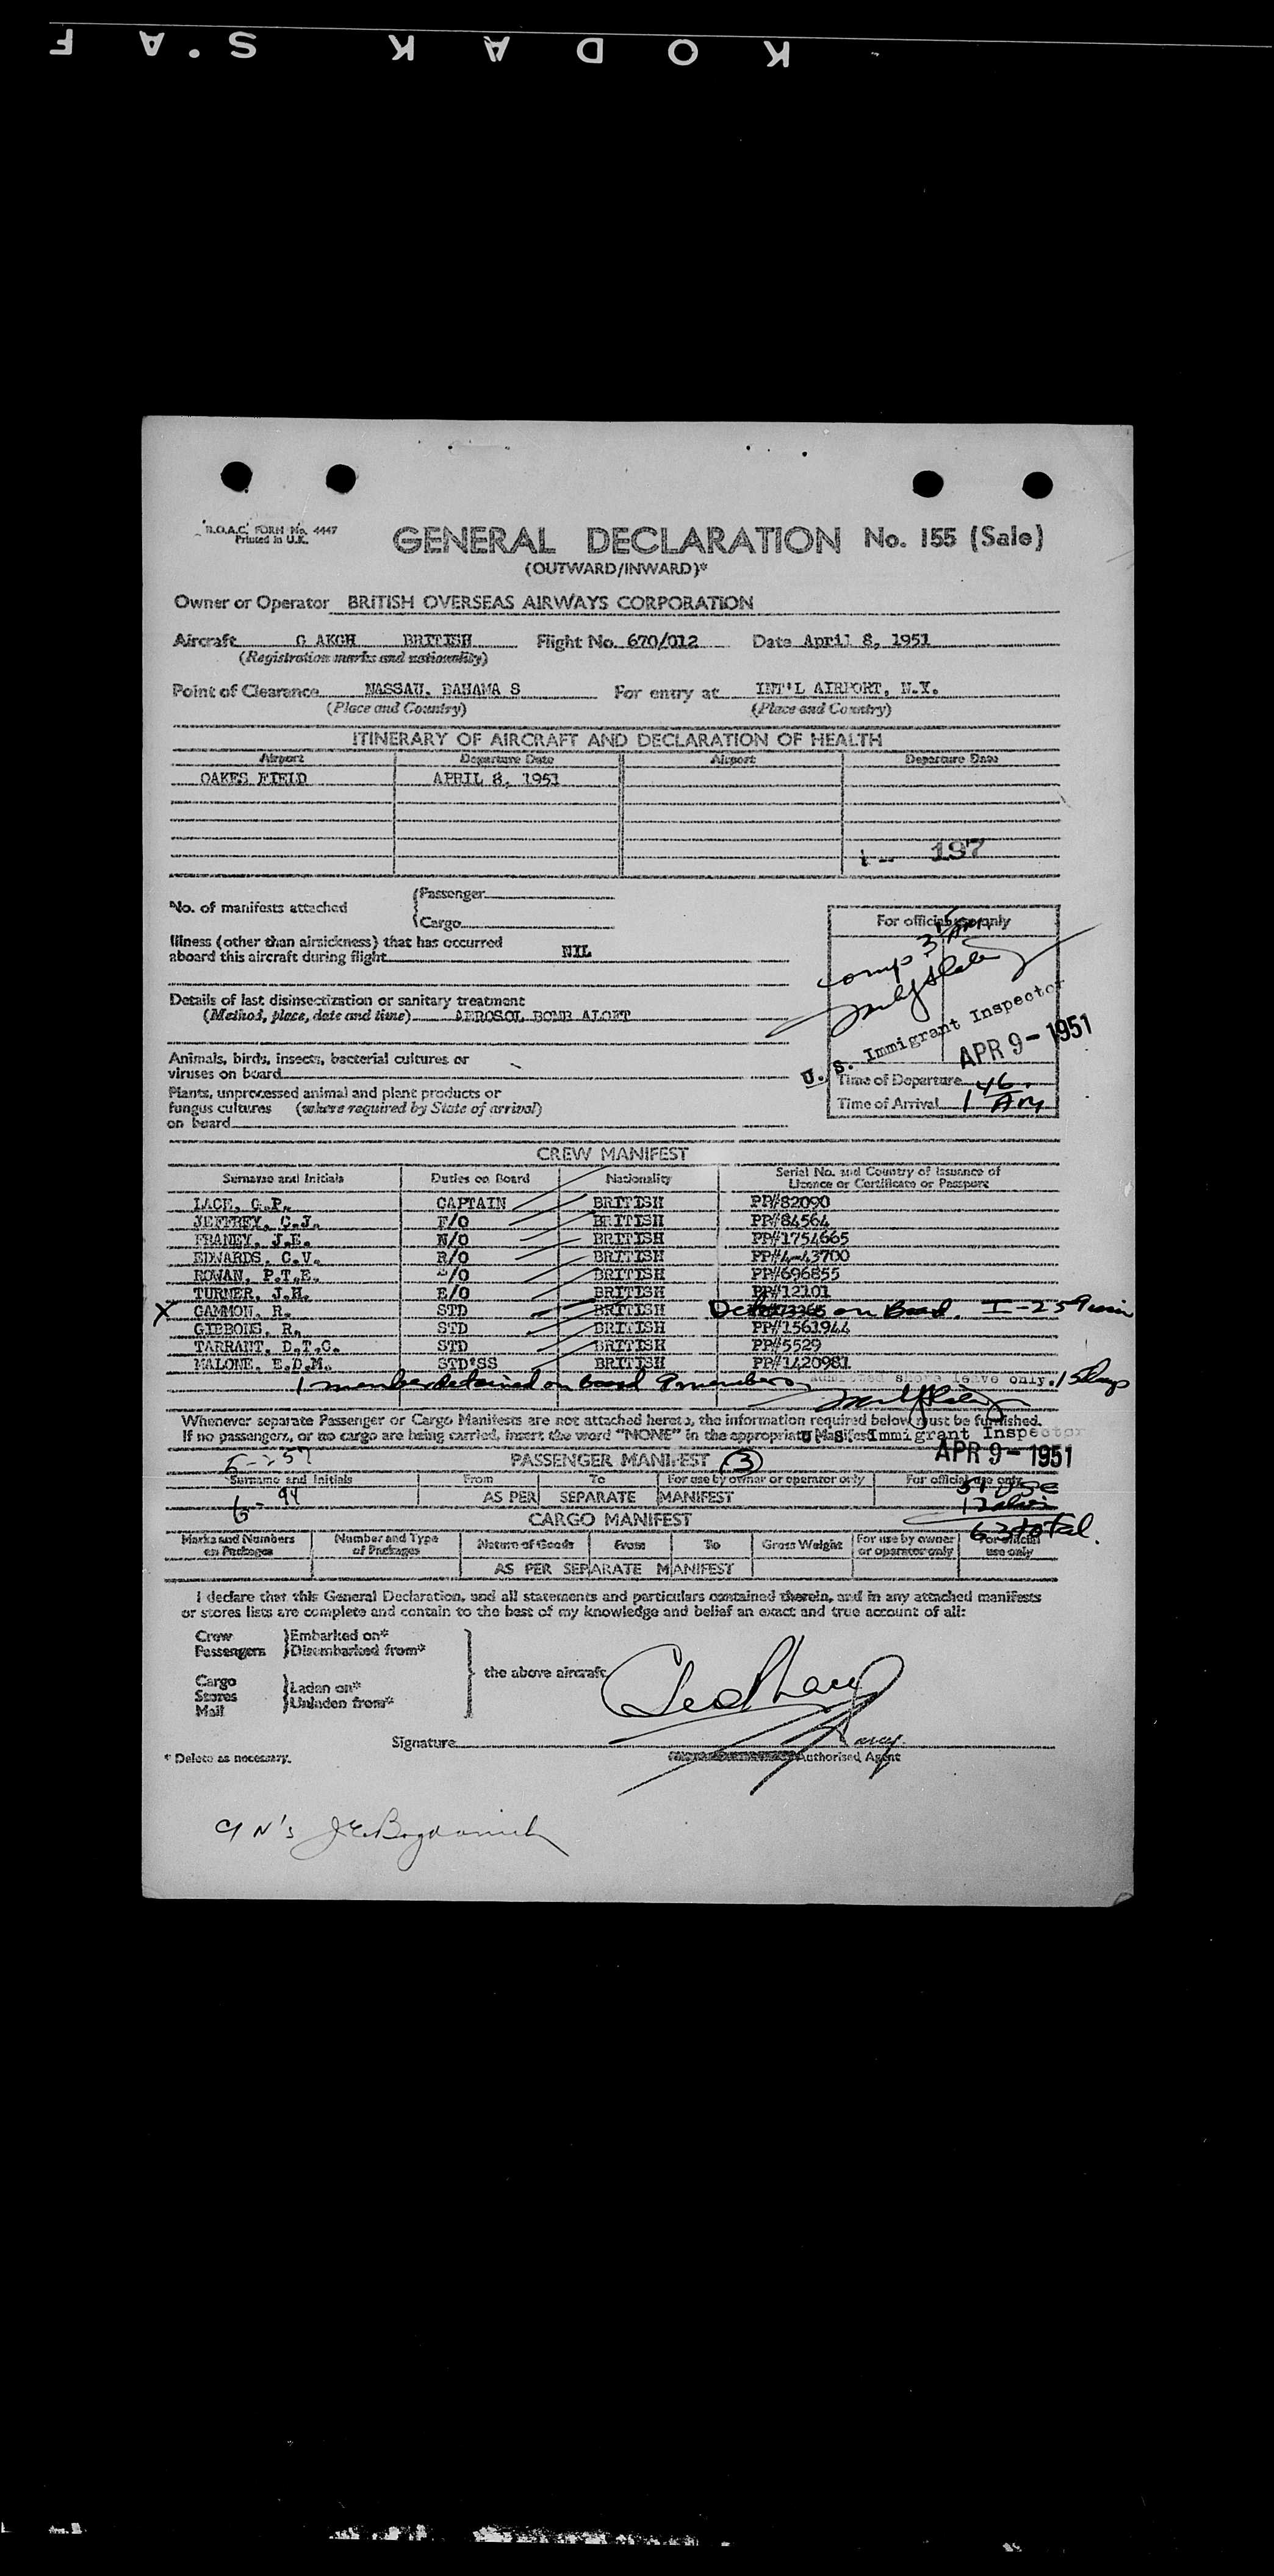 KODAK S.'A F
'B.O.A.C.' FORM No. 4447
Printed in U.K.
GENERAL DECLARATION No. 155 (Sale)
(OUTWARD/INWARD)*
Owner or Operator BRITISH OVERSEAS AIRWAYS CORPORATION
Aircraft G AKGH BRITISH Flight No. 670/012 Date April 8, 1951
(Registration marks and nationality)
Point of Clearance NASSAU. BAHAMA S For entry at INT'L AIRPORT, N.Y.
(Place and Country) (Place and Country)
ITINERARY OF AIRCRAFT AND DECLARATION OF HEALTH
Airport Departure Date Airport Departure Date
OAKES FIELD APRIL 8, 1951
1 - 197
No. of manifests attached
Passenger
Cargo
For official use only
Illness (other than airsickness) that has occurred
aboard this aircraft during flight NIL
comp 3
Details of last disinsectization or sanitary treatment
(Method, place, date and time) AEROSOL BOMB ALOFT
U. S. Immigrant Inspector
APR 9 - 1951
Animals, birds, insects, bacterial cultures or
viruses on board
Time of Departure
Plants, unprocessed animal and plant products or
fungus cultures (where required by State of arrival)
on board
Time of Arrival 1 46 AM
CREW MANIFEST
Surname and Initials Duties on Board Nationality Serial No. and Country of Issuance of
Licence or Certificate or Passport
LACE, G.P. CAPTAIN BRITISH PP#82090
JEFFREY, C.J. F/O BRITISH PP#84564
FRANEY, J.E. N/O BRITISH PP#1754665
EDWARDS, C.V. R/O BRITISH PP#4-43700
ROWAN, P.T.E. /O BRITISH PP#696855
TURNER, J.H. E/O BRITISH PP#12101
X GAMMON, R. STD BRITISH on Board. I-259
GIBBONS, R. STD BRITISH PP#1561944
TARRANT, D.T.C. STD BRITISH PP#5529
MALONE, E.D.M. STD'SS BRITISH PP#1420981
1 member detained on board 9 members admitted shore leave only. 15 days
Whenever separate Passenger or Cargo Manifests are not attached hereto, the information required below must be furnished.
If no passengers, or no cargo are being carried, insert the word "NONE" in the appropriate Manifest
U. S. Immigrant Inspector
APR 9 - 1951
PASSENGER MANIFEST 3
Surname and Initials From To For use by owner or operator only For official use only
6 - 94 AS PER SEPARATE MANIFEST
CARGO MANIFEST
63 total.
Marks and Numbers on Packages Number and Type of Packages Nature of Goods From To Gross Weight For use by owner or operator only For official use only
AS PER SEPARATE MANIFEST
I declare that this General Declaration, and all statements and particulars contained therein, and in any attached manifests
or stores lists are complete and contain to the best of my knowledge and belief an exact and true account of all:
Crew Embarked on*
Passengers Disembarked from*
the above aircraft
Cargo
Stores Laden on*
Mail Unladen from*
Signature
* Delete as necessary.
Authorised Agent